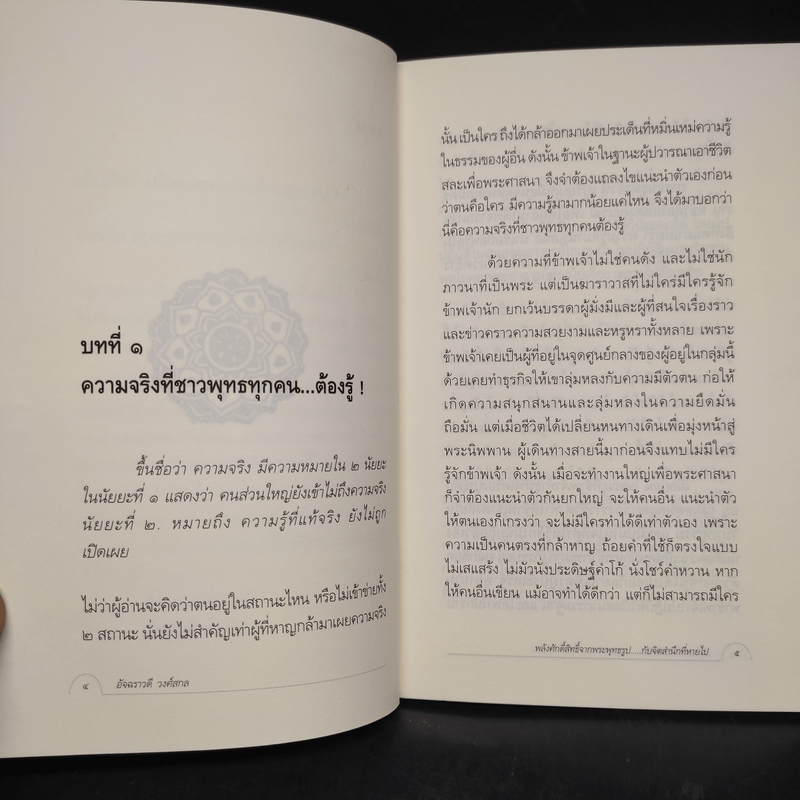 บทที่ ๑
ความจริงที่ชาวพุทธทุกคน...ต้องรู้ !
ขึ้นชื่อว่า ความจริง มีความหมายใน ๒ นัยยะ
ในนัยยะที่ ๑ แสดงว่า คนส่วนใหญ่ยังเข้าไม่ถึงความจริง
นัยยะที่ ๒. หมายถึง ความรู้ที่แท้จริง ยังไม่ถูก
เปิดเผย
ไม่ว่าผู้อ่านจะคิดว่าตนอยู่ในสถานะไหน หรือไม่เข้าข่ายทั้ง
๒ สถานะ นั่นยังไม่สำคัญเท่าผู้ที่หาญกล้ามาเผยความจริง
๔ อัจฉราวดี วงศ์สกล
นั้น เป็นใคร ถึงได้กล้าออกมาเผยประเด็นที่หมิ่นเหม่ความรู้
ในธรรมของผู้อื่น ดังนั้น ข้าพเจ้าในฐานะผู้ปวารณาเอาชีวิต
สละเพื่อพระศาสนา จึงจำต้องแถลงไขแนะนำตัวเองก่อน
ว่าตนคือใคร มีความรู้มามากน้อยแค่ไหน จึงได้มาบอกว่า
นี่คือความจริงที่ชาวพุทธทุกคนต้องรู้
ด้วยความที่ข้าพเจ้าไม่ใช่คนดัง และไม่ใช่นัก
ภาวนาที่เป็นพระ แต่เป็นฆาราวาสที่ไม่ใคร่มีใครรู้จัก
ข้าพเจ้านัก ยกเว้นบรรดาผู้มั่งมีและผู้ที่สนใจเรื่องราว
และข่าวคราวความสวยงามและหรูหราทั้งหลาย เพราะ
ข้าพเจ้าเคยเป็นผู้ที่อยู่ในจุดศูนย์กลางของผู้อยู่ในกลุ่มนี้
ด้วยเคยทำธุรกิจให้เขาลุ่มหลงกับความมีตัวตน ก่อให้
เกิดความสนุกสนานและลุ่มหลงในความยึดมั่น
ถือมั่น แต่เมื่อชีวิตได้เปลี่ยนหนทางเดินเพื่อมุ่งหน้าสู่
พระนิพพาน ผู้เดินทางสายนี้มาก่อนจึงแทบไม่มีใคร
รู้จักข้าพเจ้า ดังนั้น เมื่อจะทำงานใหญ่เพื่อพระศาสนา
ก็จำต้องแนะนำตัวกันยกใหญ่ จะให้คนอื่น แนะนำตัว
ให้ตนเองก็เกรงว่า จะไม่มีใครทำได้ดีเท่าตัวเอง เพราะ
ความเป็นคนตรงที่กล้าหาญ ถ้อยคำที่ใช้ก็ตรงใจแบบ
ไม่เสแสร้ง ไม่มัวนั่งประดิษฐ์คำโก้ นั่งโชว์คำหวาน หาก
ให้คนอื่นเขียน แม้อาจทำได้ดีกว่า แต่ก็ไม่สามารถมีใคร
พลังศักดิ์สิทธิ์จากพระพุทธรูป....กับจิตสำนึกที่หายไป ๕